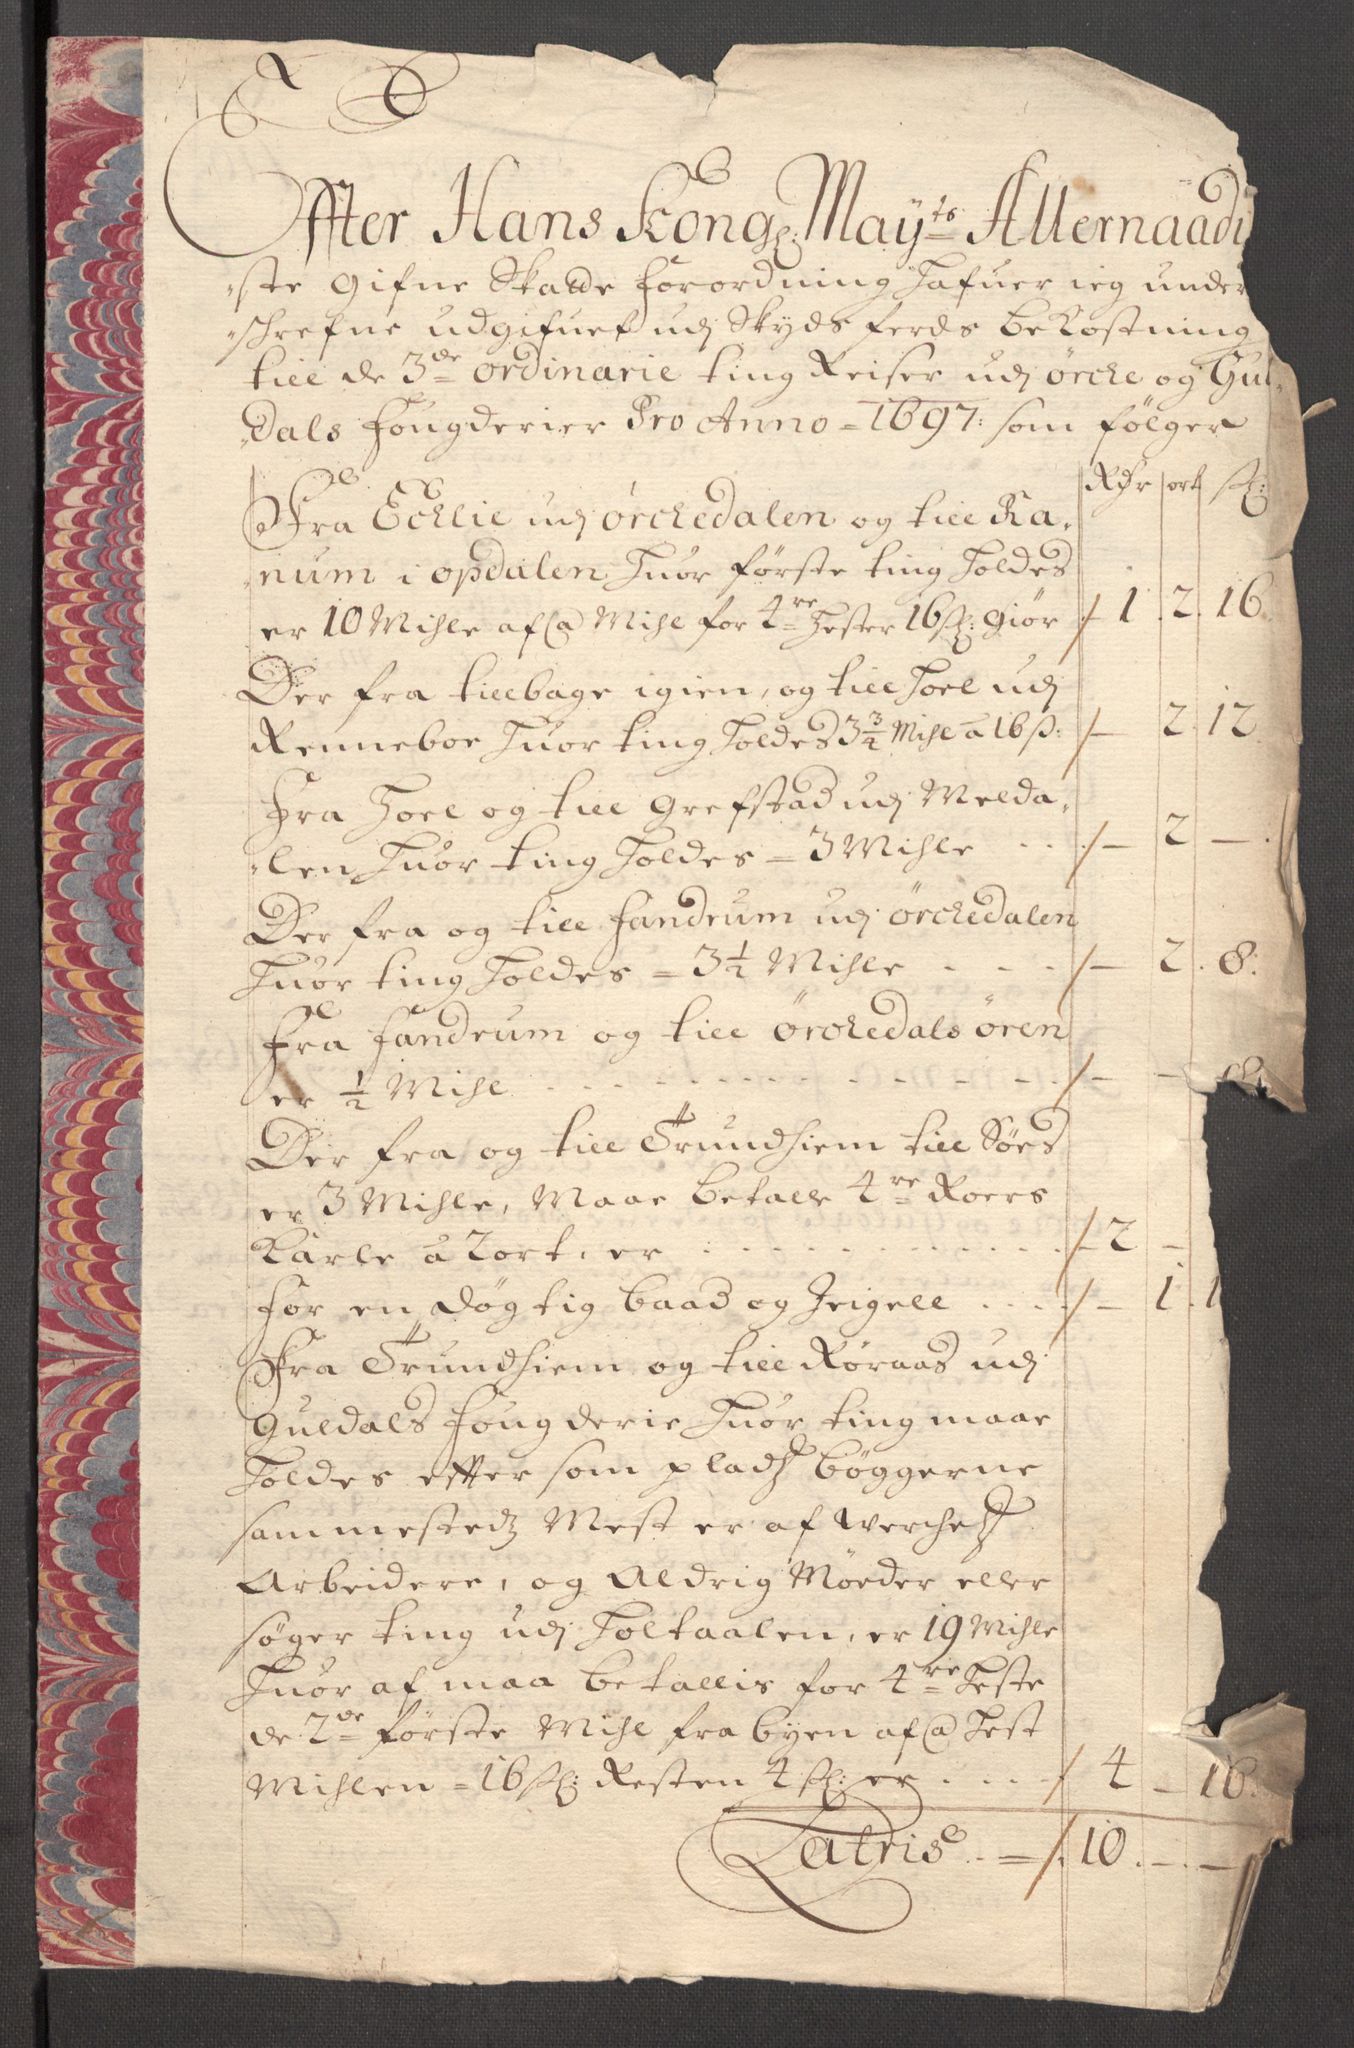 Effter Hans Kong: Mayts Allernaadi
ste Gifne Skatte forordning hafuer ieg under
schrefne udgifuet udj Skyds ferds bekostning
till de 3de ordinarie ting Reiser udj örcke og Gul
dals fougderier Pro Anno = 1697: som fölger
Rdr ort sk:
Fra Ecklie udj örckedalen og till Ra,
num i opdalen huor förste ting holdes
er 10 Mihle af a Mihl for 4re hester 16 sk: giör 1 2 16
Der fra tillbage igien, og till hoel udj
Renneboe huor ting holdes 3 3/4 Mihl a 16 s: – 2 12
Fra hoel og till Grefstad udj Melda,
len huor ting holdes = 3 Mihle .. – 2 –
Der fra og till fandrum udj örckedalen
huor ting holdes = 3 1/2 Mihle .... – 2 8:
Fra fandrum og till örckedals ören
er 1/2 Mihl ............ – –
Der fra og till Trundhiem till Söes
er 3 Mihle, Maae betalle 4re Roers
karle a 2 ort, er ............ 2 –
for en dögtig baad og Seigell .... – 1 1
Fra Trundhiem og till Röraas udj
Guldals fougderie huor ting maae
holdes effter som pladz böggerne
sammestedz Mest er af werchetz
Arbeidere, og Aldrig Möeder eller
söger ting udj holtaalen, er 19 Mihle
huor af maa betallis for 4re heste
de 2de förste Mihl fra byen af a hest
Mihlen = 16 sk: Resten 4 sk: er .... 4 – 16
Latris .. = 10 – –